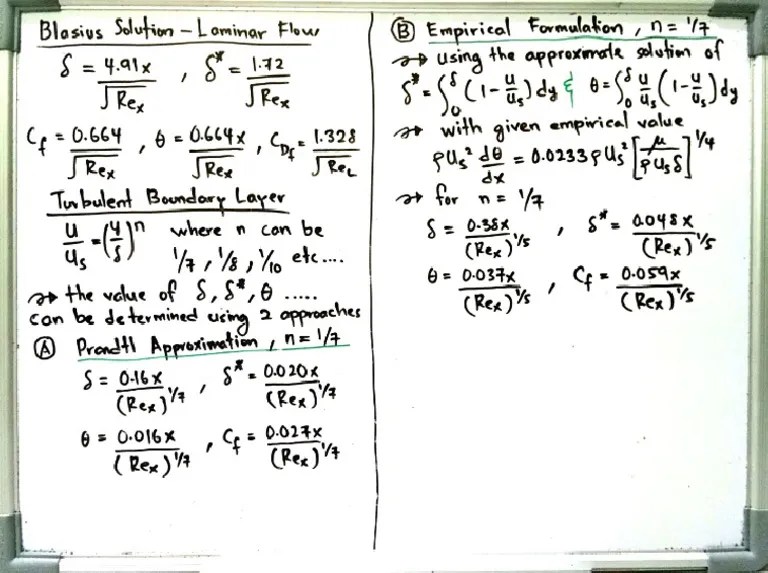 Blasius Solution – Laminar Flow
δ = 4.91x / √Reₓ , δ* = 1.72 / √Reₓ
C_f = 0.664 / √Reₓ , θ = 0.664x / √Reₓ , C_Df = 1.328 / √Re_L
Turbulent Boundary Layer
u/us = (y/δ)ⁿ where n can be
1/7, 1/8, 1/10 etc....
↝ the value of δ, δ*, θ .....
can be determined using 2 approaches
Ⓐ Prandtl Approximation, n = 1/7
δ = 0.16x / (Reₓ)^1/7 , δ* = 0.020x / (Reₓ)^1/7
θ = 0.016x / (Reₓ)^1/7 , C_f = 0.027x / (Reₓ)^1/7
Ⓑ Empirical Formulation, n = 1/7
↝ using the approximate solution of
δ* = ∫₀^δ (1 - u/us) dy & θ = ∫₀^δ u/us (1 - u/us) dy
↝ with given empirical value
ρUs² dθ/dx = 0.0233 ρUs² [μ / ρUsδ]^1/4
↝ for n = 1/7
δ = 0.38x / (Reₓ)^1/5 , δ* = 0.048x / (Reₓ)^1/5
θ = 0.037x / (Reₓ)^1/5 , C_f = 0.059x / (Reₓ)^1/5